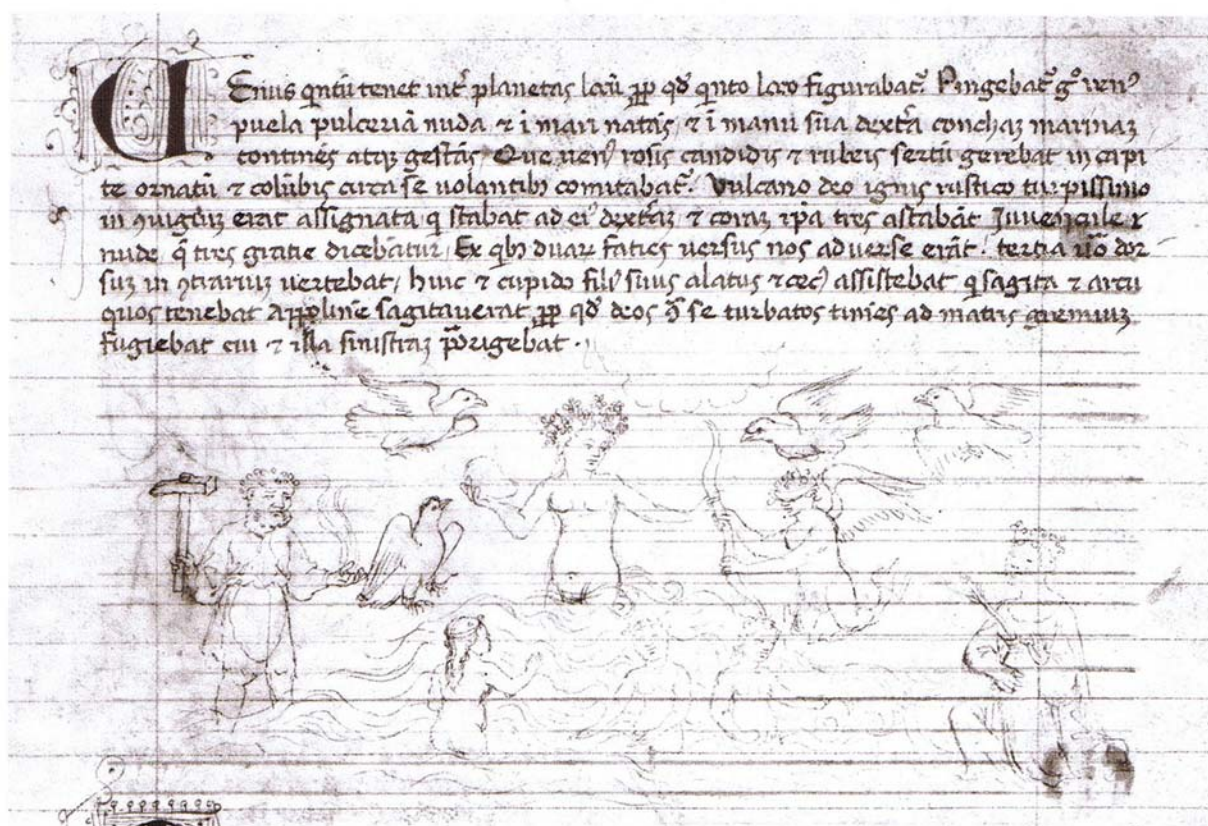 VEnus q̄ntū tenet int᷑ planetas locū ꝓp̄ qđ q̄nto loco figurabat᷑. Pingebat᷑ gͦ venꝰ
puela pulcerīa nuda ⁊ ī mari natās, ⁊ ī manu sua dextra conchaʒ marinaʒ
continēs atqʒ gestās, Que uenꝰ rosis candidis ⁊ rubeis sertū gerebat in capi
te ornatū ⁊ colūbis circa se uolantibꝫ comitabat᷑. Vulcano deo ignis rustico turpissimo
in ꝯiugiuʒ erat assignata q̄ stabat ad eiꝰ dextraʒ ⁊ coraʒ ip̄a tres astabāt Juvencule
nude q̄ tres gratie dicebātur, Ex qbꝫ duaꝝ faties uersus nos aduerse erāt. tertia uͦo dor
suʒ in ꝯtrariuʒ uertebat, huic ⁊ cupido filiꝰ suus alatus ⁊ cecꝰ assistebat q̄ sagita ⁊ arcu
quos tenebat Appolinē sagitauerat ꝓp̄ qđ deos ꝯ̄ se turbatos timēs ad matris gremiuʒ
fugiebat cui ⁊ illa sinistraʒ p̄origebat.